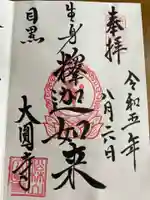 奉拝
令和五年
八月二六日
生身
釋迦如来
目黒
大圓寺